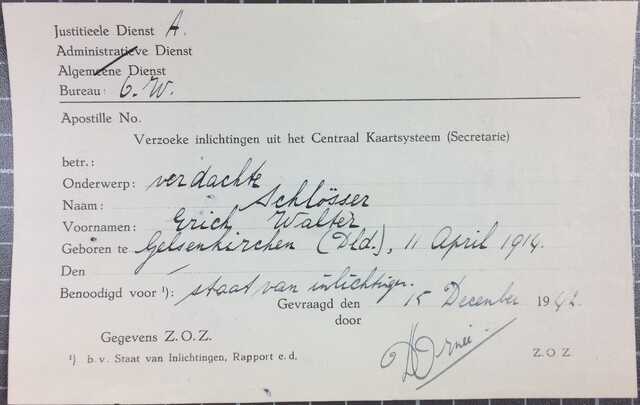 Justitieele Dienst A.
Administratieve Dienst
Algemeene Dienst
Bureau: 6. W.
Apostille No.
Verzoeke inlichtingen uit het Centraal Kaartsysteem (Secretarie)
betr.:
Onderwerp: verdachte
Naam: Schlösser
Voornamen: Erich Walter
Geboren te Gelsenkirchen (Dld.), 11 April 1914.
Den
Benoodigd voor ¹): staat van inlichtingen.
Gevraagd den 15 December 1942.
door
Gegevens Z.O.Z.
¹) b.v. Staat van Inlichtingen, Rapport e.d.
Z.O.Z.